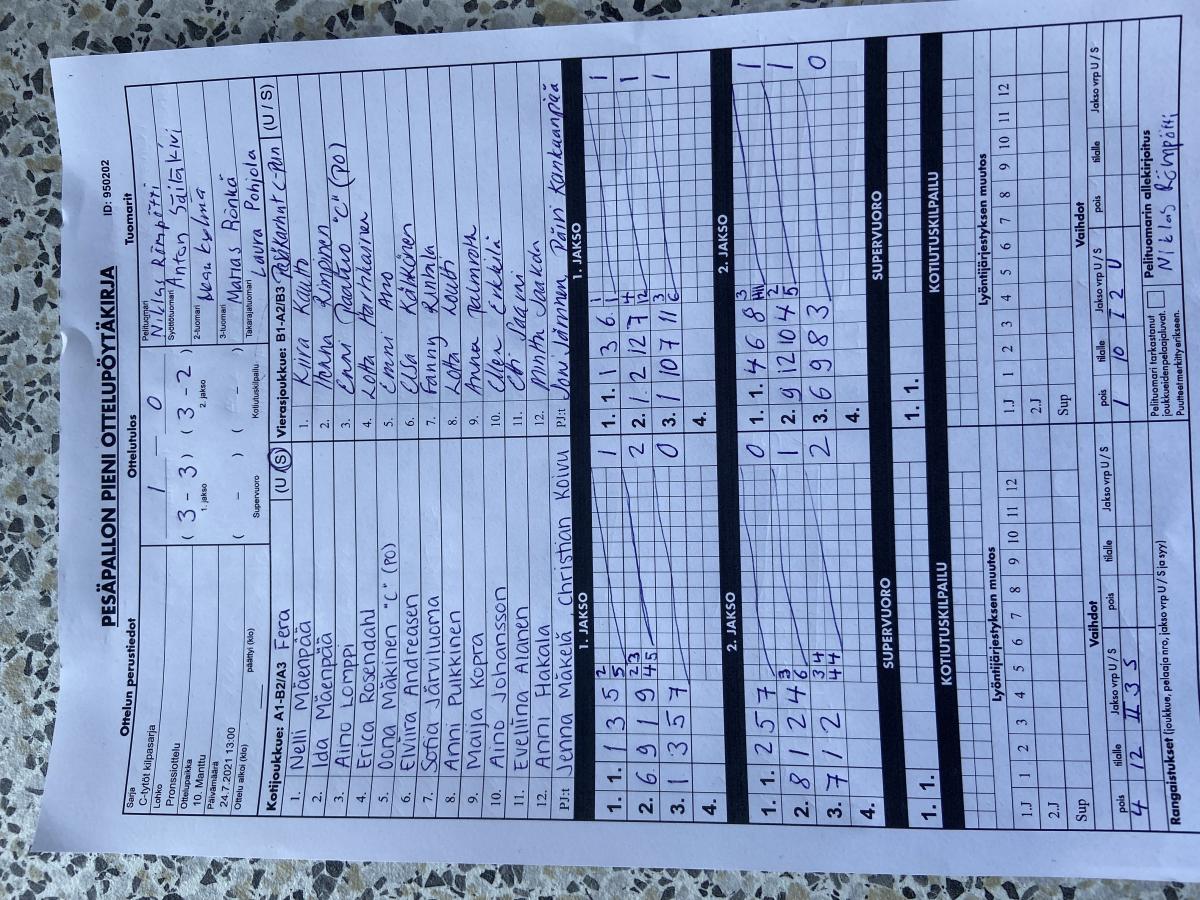 PESÄPALLON PIENI OTTELUPÖYTÄKIRJA
ID: 950202
Ottelun perustiedot
Ottelutulos
Tuomarit
Sarja
C-tytöt kilpasarja
Lohko
Pronssiottelu
Ottelupaikka
10. Manttu
Päivämäärä
24.7.2021 13:00
Ottelu alkoi (klo)
päättyi (klo)
1 — 0
( 3 - 3 ) ( 3 - 2 )
1. jakso 2. jakso
( - ) ( - )
Supervuoro Kotiutuskilpailu
Pelituomari
Niklas Römpötti
Syöttötuomari
Anton Säiläkivi
2-tuomari
3-tuomari
Matias Rönkä
Takarajatuomari
Laura Pohjola
Kotijoukkue: A1-B2/A3 Fera (U / S)
1. Nelli Mäenpää
2. Ida Mäenpää
3. Aino Lomppi
4. Erica Rosendahl
5. Oona Mäkinen "C" (PO)
6. Elviira Andreasen
7. Sofia Järviluoma
8. Anni Pulkkinen
9. Maija Kopra
10. Aino Johansson
11. Eveliina Alanen
12. Anni Hakala
PJ:t Jenna Mäkelä Christian Koivu
Vierasjoukkue: B1-A2/B3 (U / S)
1. Kiira Kautto
2. Hanna Rimpinen
3. Enni Jaatuo "C" (PO)
4. Lotta Harhkainen
5. Emmi Aro
6. Elsa Kölkkönen
7. Fanny Rintala
8. Lotta Loutti
9. Anna Palmroth
10. Ellen Erkkilä
11. Saarni
12. Minttu Jaakola
PJ:t Jani Järvinen Päivi Kankaanpää
1. JAKSO
1. 1. 1 3 5 2 5 1
2. 6 9 1 9 23 45 2
3. 1 3 5 7 0
4.
1. JAKSO
1. 1. 1 3 6 1 1 1
2. 1 2 12 7 4 12 1
3. 1 10 7 11 3 6 1
4.
2. JAKSO
1. 1. 2 5 7 0
2. 8 1 2 4 3 6 1
3. 7 1 2 34 44 2
4.
2. JAKSO
1. 1. 4 6 8 3 1
2. 9 12 10 4 2 5 1
3. 6 9 8 3 0
4.
SUPERVUORO
1. 1.
SUPERVUORO
1. 1.
KOTIUTUSKILPAILU
KOTIUTUSKILPAILU
Lyöntijärjestyksen muutos
1.J 1 2 3 4 5 6 7 8 9 10 11 12
2.J
Sup
Lyöntijärjestyksen muutos
1.J 1 2 3 4 5 6 7 8 9 10 11 12
2.J
Sup
Vaihdot
pois tilalle Jakso vrp U / S pois tilalle Jakso vrp U / S
4 12 II 3 S
Vaihdot
pois tilalle Jakso vrp U / S pois tilalle Jakso vrp U / S
1 10 I 2 U
Rangaistukset (joukkue, pelaaja nro, jakso vrp U / S ja syy)
Pelituomari tarkastanut
joukkueidenpelaajaluvat.
Puutteet merkitty erikseen.
Pelituomarin allekirjoitus
Niklas Römpötti